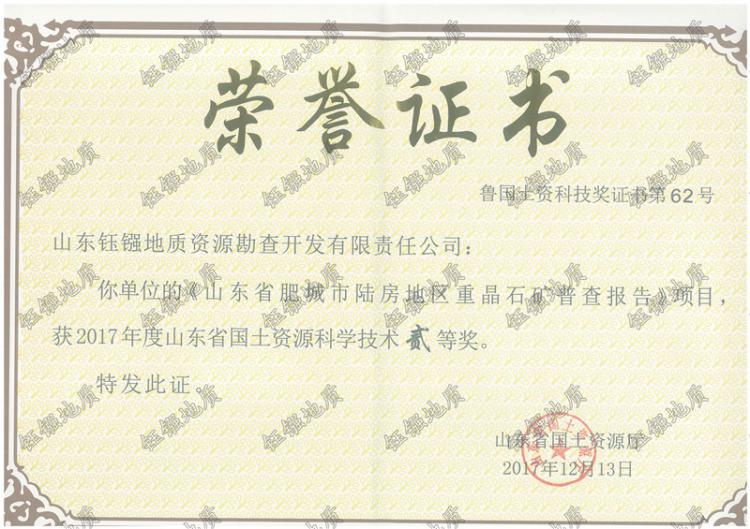 荣誉证书
鲁国土资科技奖证书第62号
山东钰镪地质资源勘查开发有限责任公司：
你单位的《山东省肥城市陆房地区重晶石矿普查报告》项目，
获2017年度山东省国土资源科学技术贰等奖。
特发此证。
山东省国土资源厅
2017年12月13日
钰镪地质